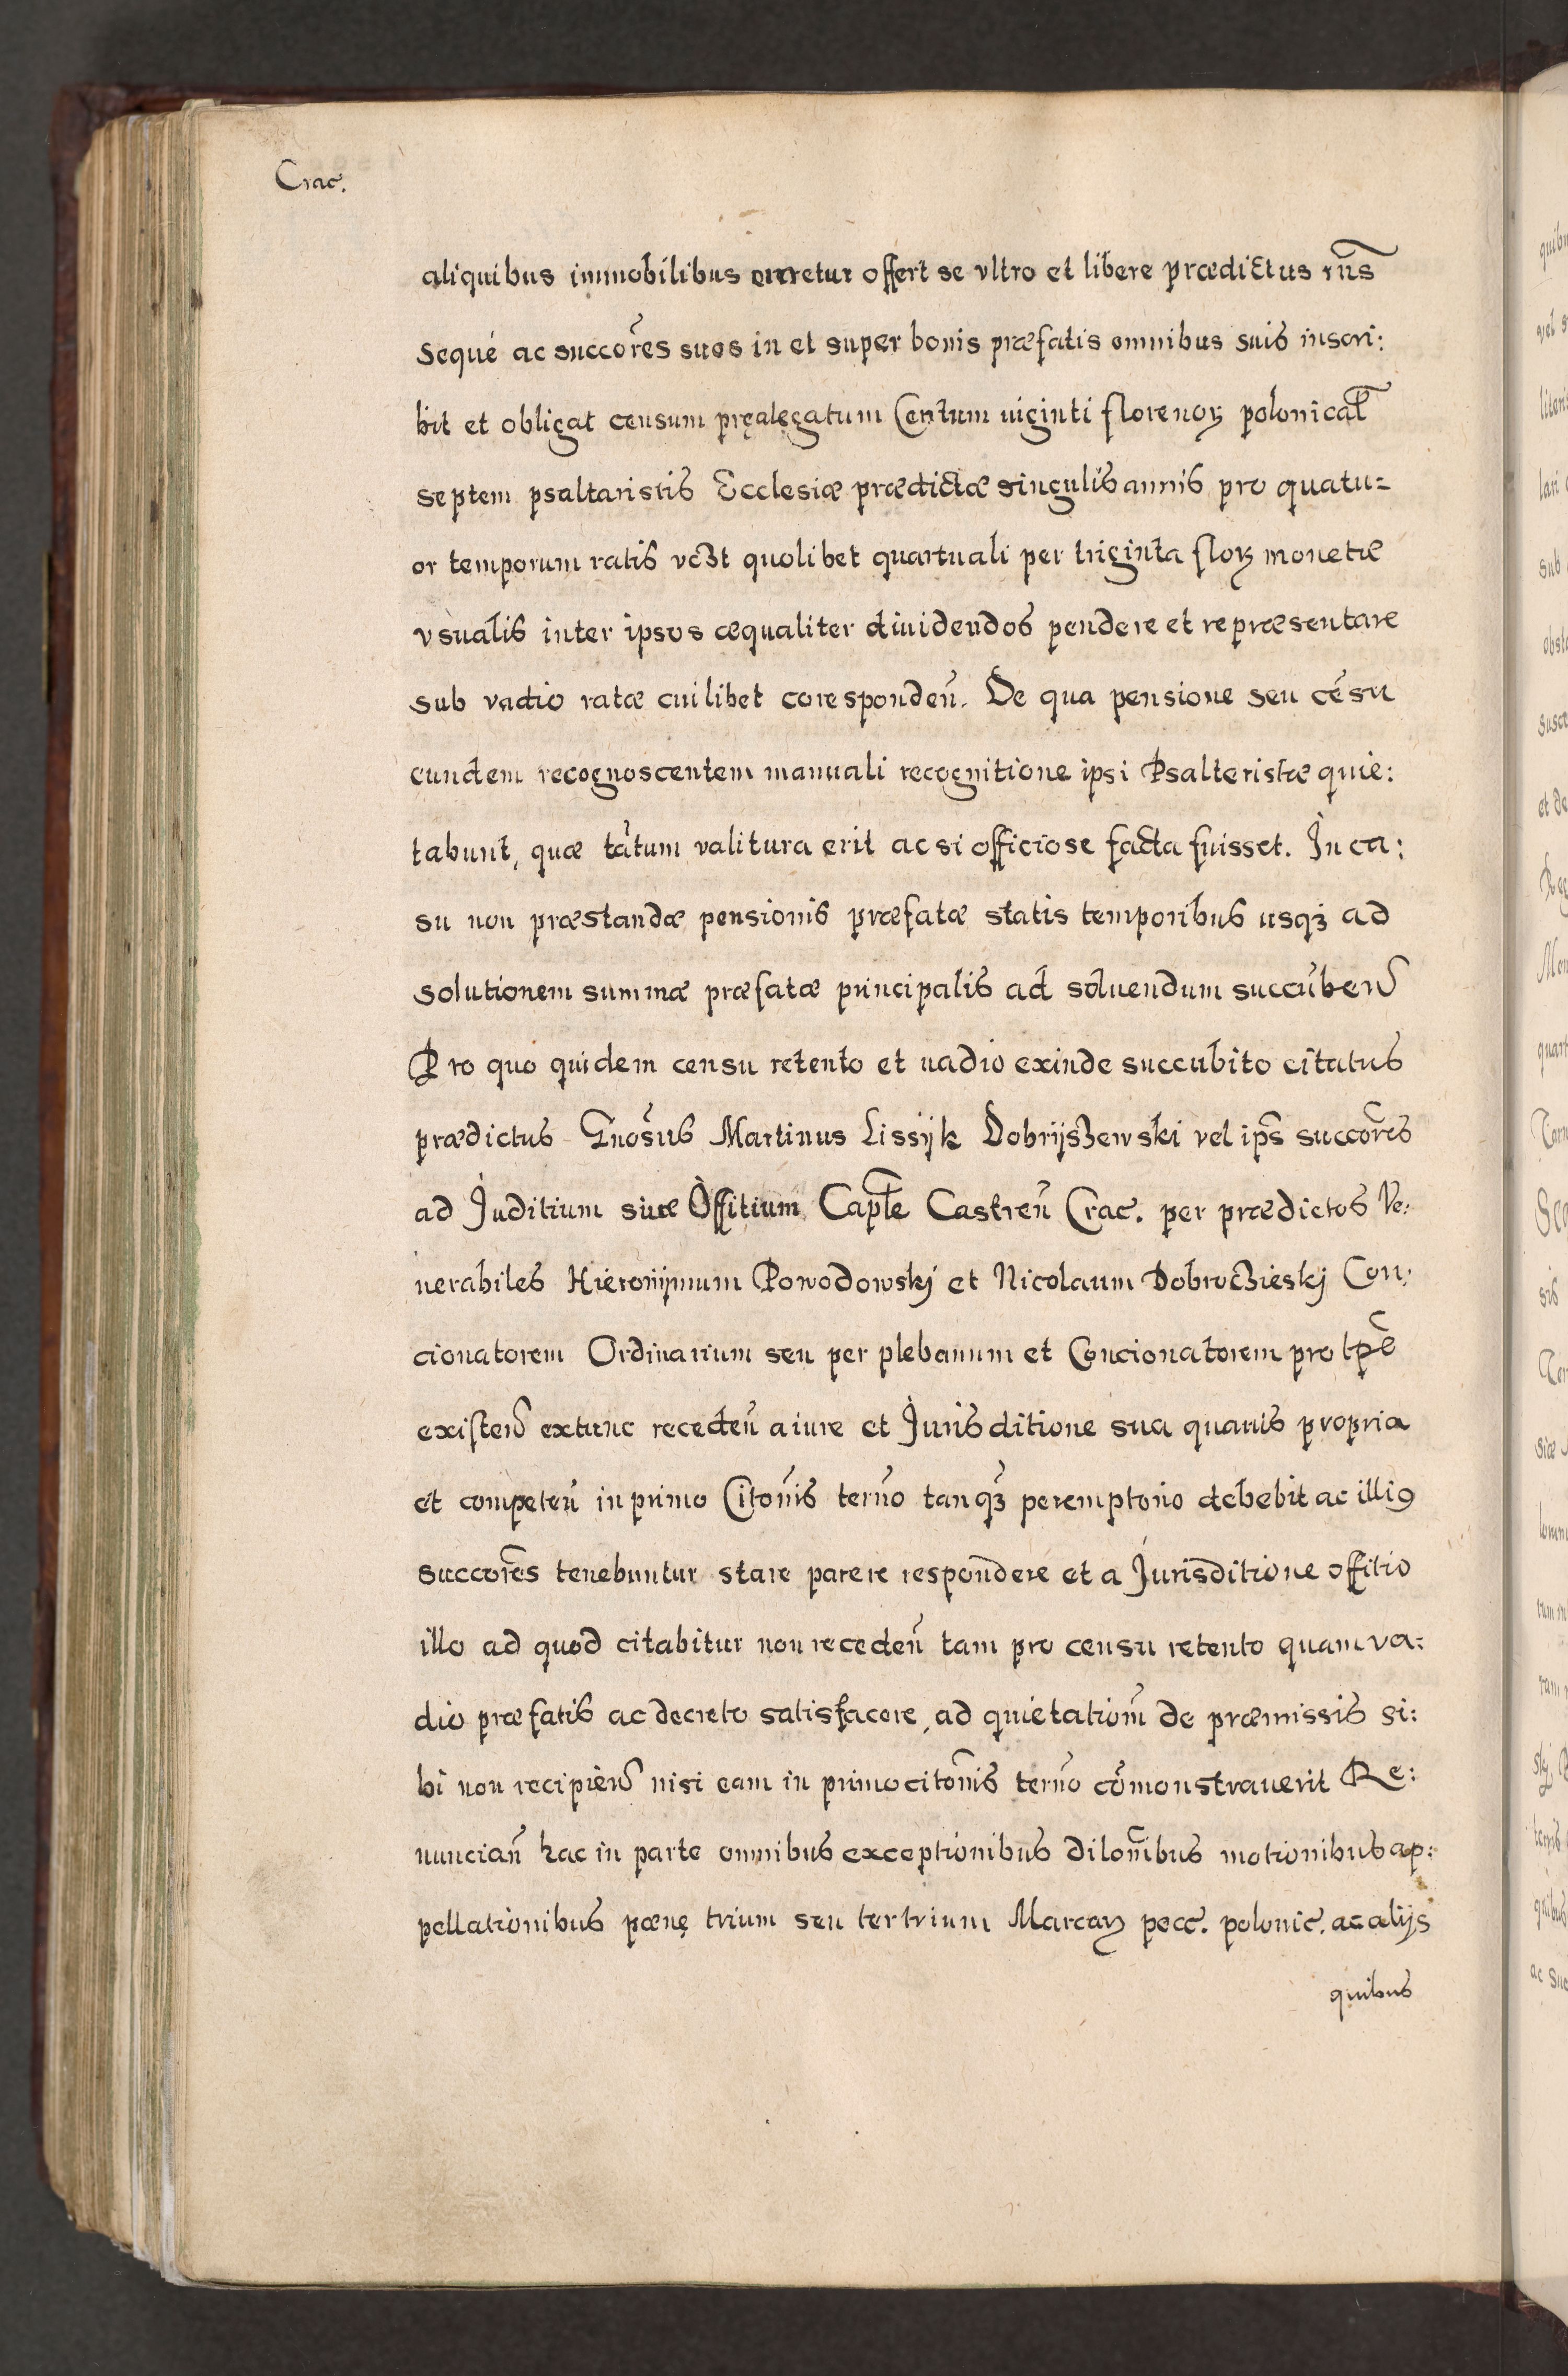 Crac.
aliquibus immobilibus oriretur offert se vltro et libere prædictus rñs
sequé ac succor̃es suos in et super bonis præfatis omnibus suis inscri:
bit et obligat censum pręalęgatum Centum uiginti florenoꝝ polonical̃
septem psaltaristis Ecclesiæ prædictæ singulis annis pro quatu=
or temporum ratis vcꝫt quolibet quartuali per triginta floꝝ monetæ
vsualis inter ipsos æqualiter diuidendos pendere et repræsentare
sub vadio ratæ cuilibet corespondeñ. De qua pensione seu cẽsu
eundem recognoscentem manuali recognitione ipsi Psalteristæ quie:
tabunt, quæ tãtum valitura erit ac si officiose facta fuisset. In ca:
su non præstandæ pensionis præfatæ statis temporibus usqꝫ ad
solutionem summæ præfatæ principalis ad soluendum succũbeñ
Pro quo quidem censu retento et uadio exinde succubito citatus
prædictus Gnosũs Martinus Lissÿk Dobrÿsʒewski vel ips̃ succor̃es
ad Juditium siue Offitium Capl̃e Castreñ Crac. per prædictos Ve:
nerabiles Hieronÿmum Powodowskj et Nicolaum Dobrocʒieskj Con:
cionatorem Ordinarium seu per plebanum et Concionatorem pro tp̃e
existeñ extunc recedeñ a iure et Jurisditione sua quauis propria
et competeñ in primo Citoñis terño tanqꝫ peremptorio debebit ac illiꝯ
succor̃es tenebuntur stare parere respondere et a Jurisditione offitio
illo ad quod citabitur non recedeñ tam pro censu retento quam va:
dio præfatis ac decreto satisfacere, ad quietatiom̃ de præmissis si:
bi non recipieñ nisi eam in primo citoñis terño cõmonstrauerit Re:
nunciañ hac in parte omnibus exceptionibus diloñibus motionibus ap:
pellationibus pœnę trium seu ter trium Marcaꝝ pecc. polonic. ac alijs
quibus